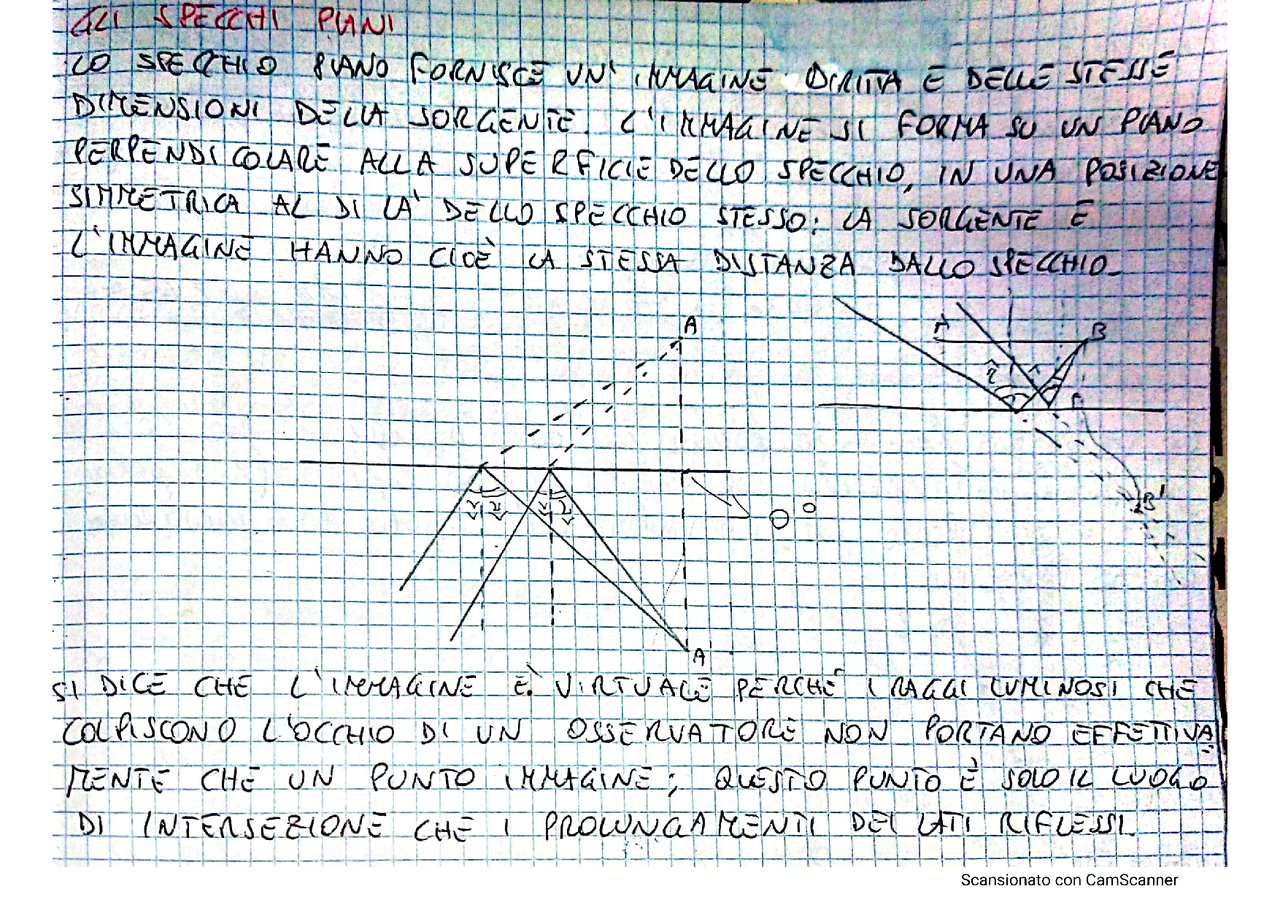 GLI SPECCHI PIANI
LO SPECCHIO PIANO FORNISCE UN' IMMAGINE DIRITTA E DELLE STESSE
DIMENSIONI DELLA SORGENTE. L'IMMAGINE SI FORMA SU UN PIANO
PERPENDICOLARE ALLA SUPERFICIE DELLO SPECCHIO, IN UNA POSIZIONE
SIMMETRICA AL DI LA' DELLO SPECCHIO STESSO: LA SORGENTE E
L'IMMAGINE HANNO CIOÈ LA STESSA DISTANZA DALLO SPECCHIO.
A
A B
r̂ r̂
î î î î
0°
B'
A'
SI DICE CHE L'IMMAGINE È VIRTUALE PERCHÉ I RAGGI LUMINOSI CHE
COLPISCONO L'OCCHIO DI UN OSSERVATORE NON PORTANO EFFETTIVA
MENTE CHE UN PUNTO IMMAGINE; QUESTO PUNTO È SOLO IL LUOGO
DI INTERSEZIONE CHE I PROLUNGAMENTI DEI LATI RIFLESSI.
Scansionato con CamScanner